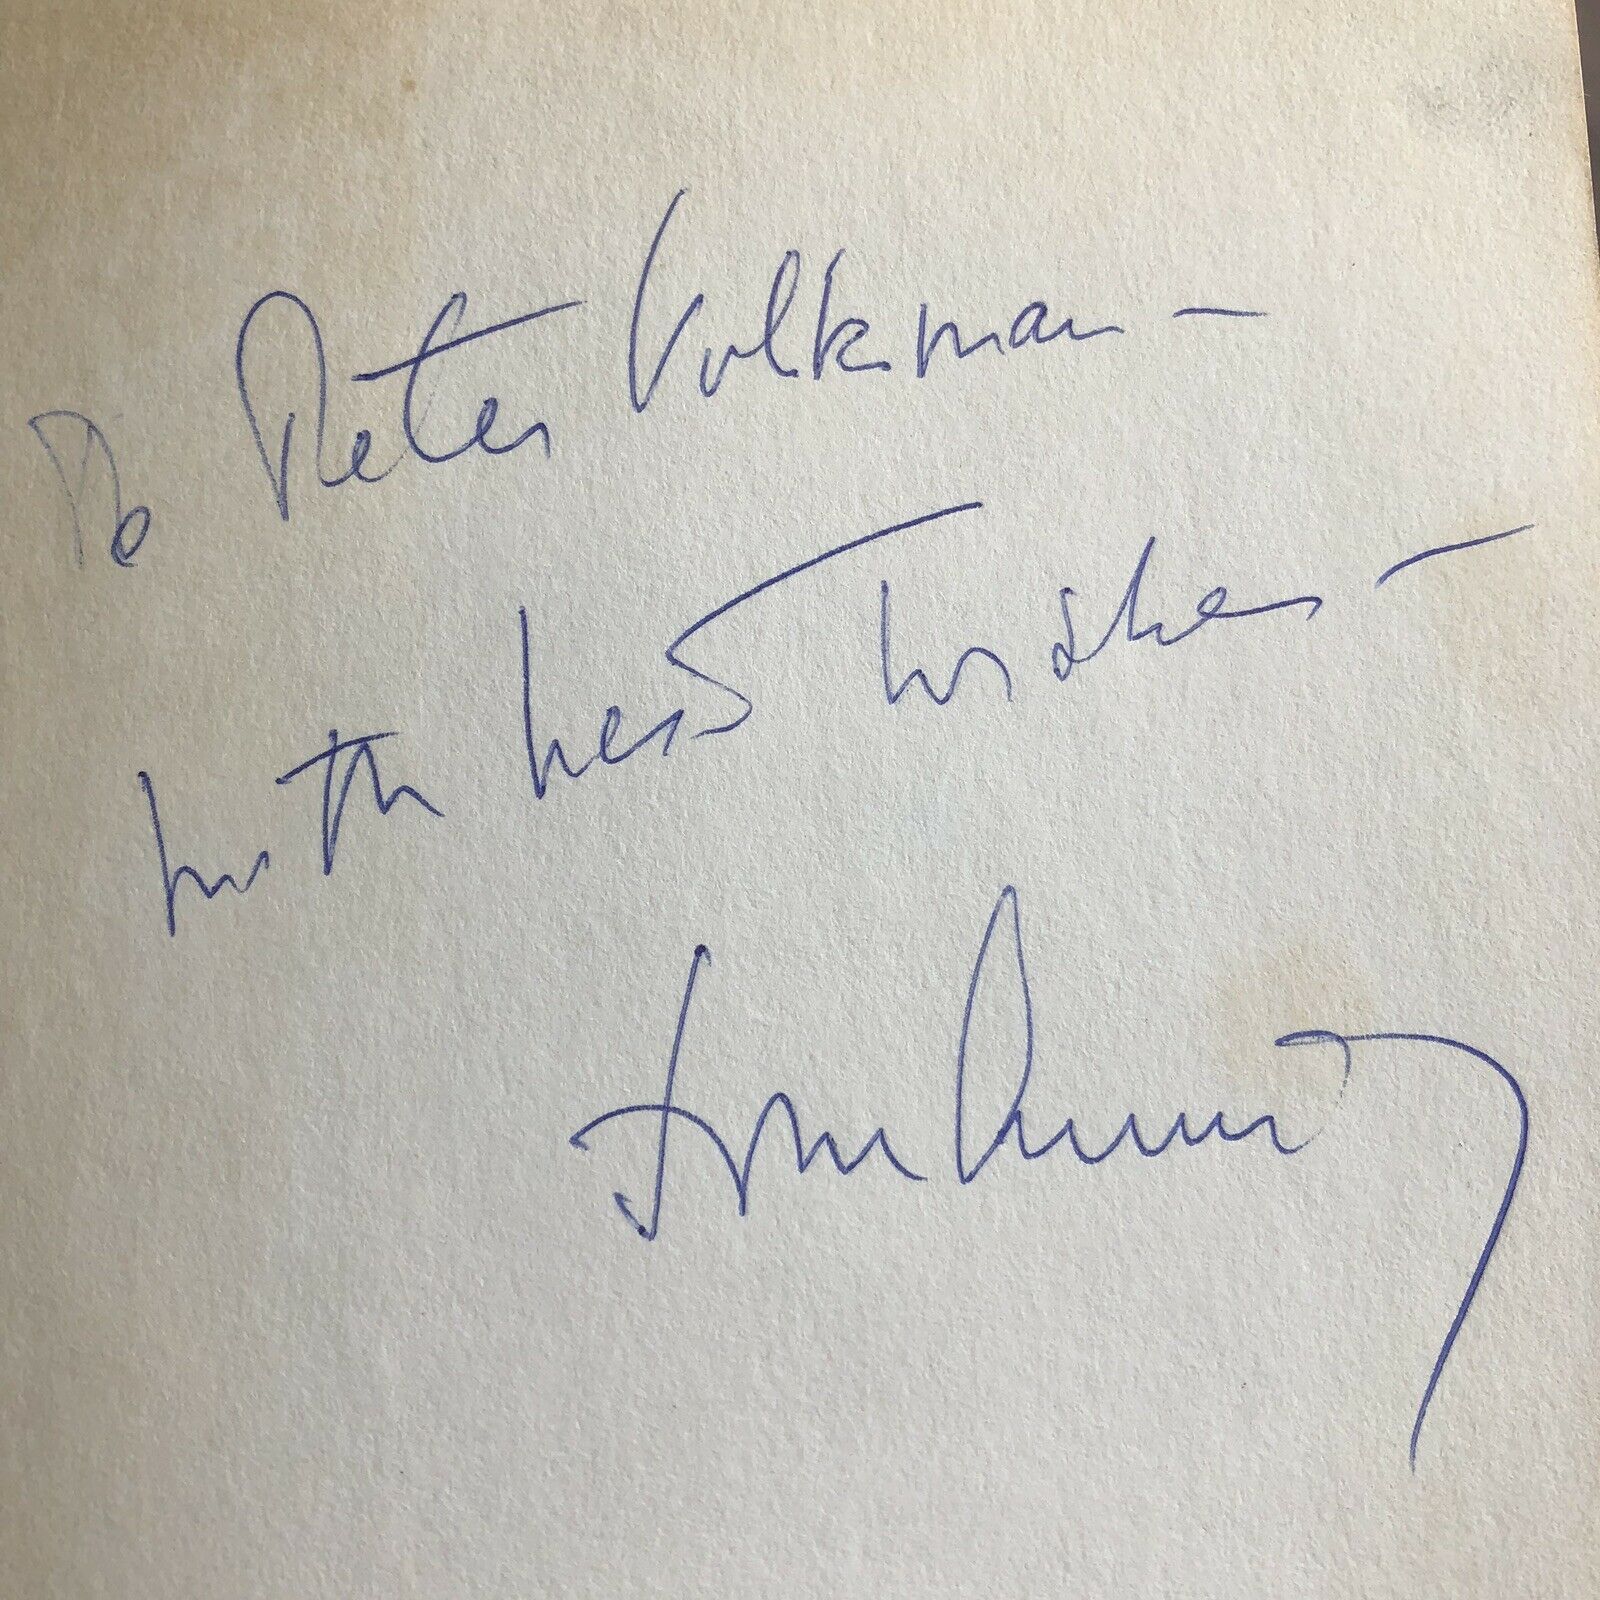 To Peter Volkman —
with best wishes —